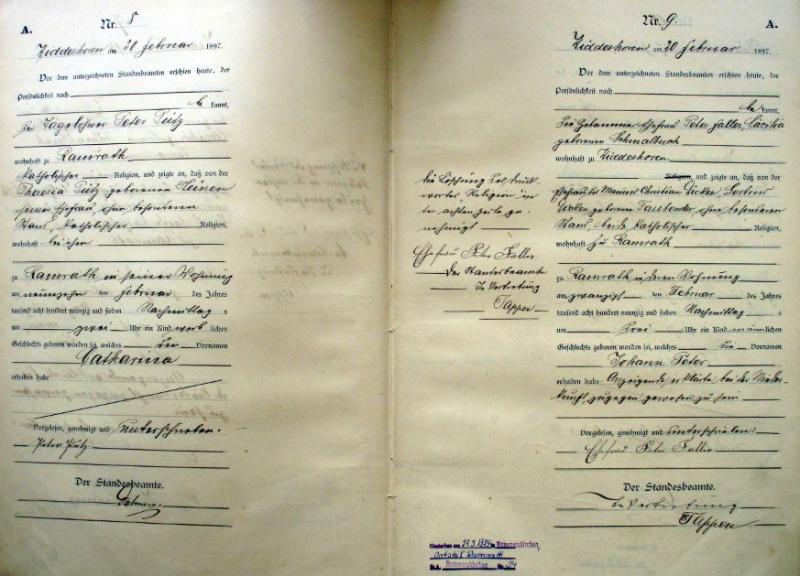 A.
Nr. 8
Hiddeshoven am 20 Februar 1897.
Vor dem unterzeichneten Standesbeamten erschien heute, der
Persönlichkeit nach
be kannt,
der Tagelöhner Peter Pütz
wohnhaft zu Ramrath
katholischer Religion, und zeigte an, daß von der
Pütz geborenen Heinen
seiner Ehefrau, ohne besonderen
Stand, katholischer Religion,
wohnhaft bei ihm
zu Ramrath in seiner Wohnung
am neunzehn ten Februar des Jahres
tausend acht hundert neunzig und sieben Nachmittags
um zwei Uhr ein Kind weib lichen
Geschlechts geboren worden sei, welches den Vornamen
Catharina
erhalten habe
Vorgelesen, genehmigt und unterschrieben.
Peter Pütz
Der Standesbeamte.
Nr. 9.
A.
Hiddeshoven am 20 Februar 1897.
Vor dem unterzeichneten Standesbeamten erschien heute, der
Persönlichkeit nach
be kannt,
die Hebamme Ehefrau Peter Faller, Cäcilia
geborenen Schmalbach
wohnhaft zu Hiddeshoven
Religion, und zeigte an, daß von der
Ehefrau des Maurers Christian
geborene Taubender, ohne besonderen
Stand, beide katholischer Religion,
wohnhaft zu Ramrath
zu Ramrath in deren Wohnung
am zwanzigst ten Februar des Jahres
tausend acht hundert neunzig und sieben Nachmittags
um drei Uhr ein Kind männ lichen
Geschlechts geboren worden sei, welches die Vornamen
Johann Peter
erhalten habe. Anzeigende erklärte bei der Nieder-
kunft zugegen gewesen zu sein
Vorgelesen, genehmigt und unterschrieben:
Ehefrau Peter Faller
Der Standesbeamte.
In Vertretung
Tappen
die Löschung des Druck-
wortes Religion in
der achten Zeile ge-
nehmigt
Ehefrau Peter Faller
Der Standesbeamte
In Vertretung
Tappen
Gestorben am in Rommerskirchen,
Ortsteil Ramrath
St.A. Rommerskirchen Nr.